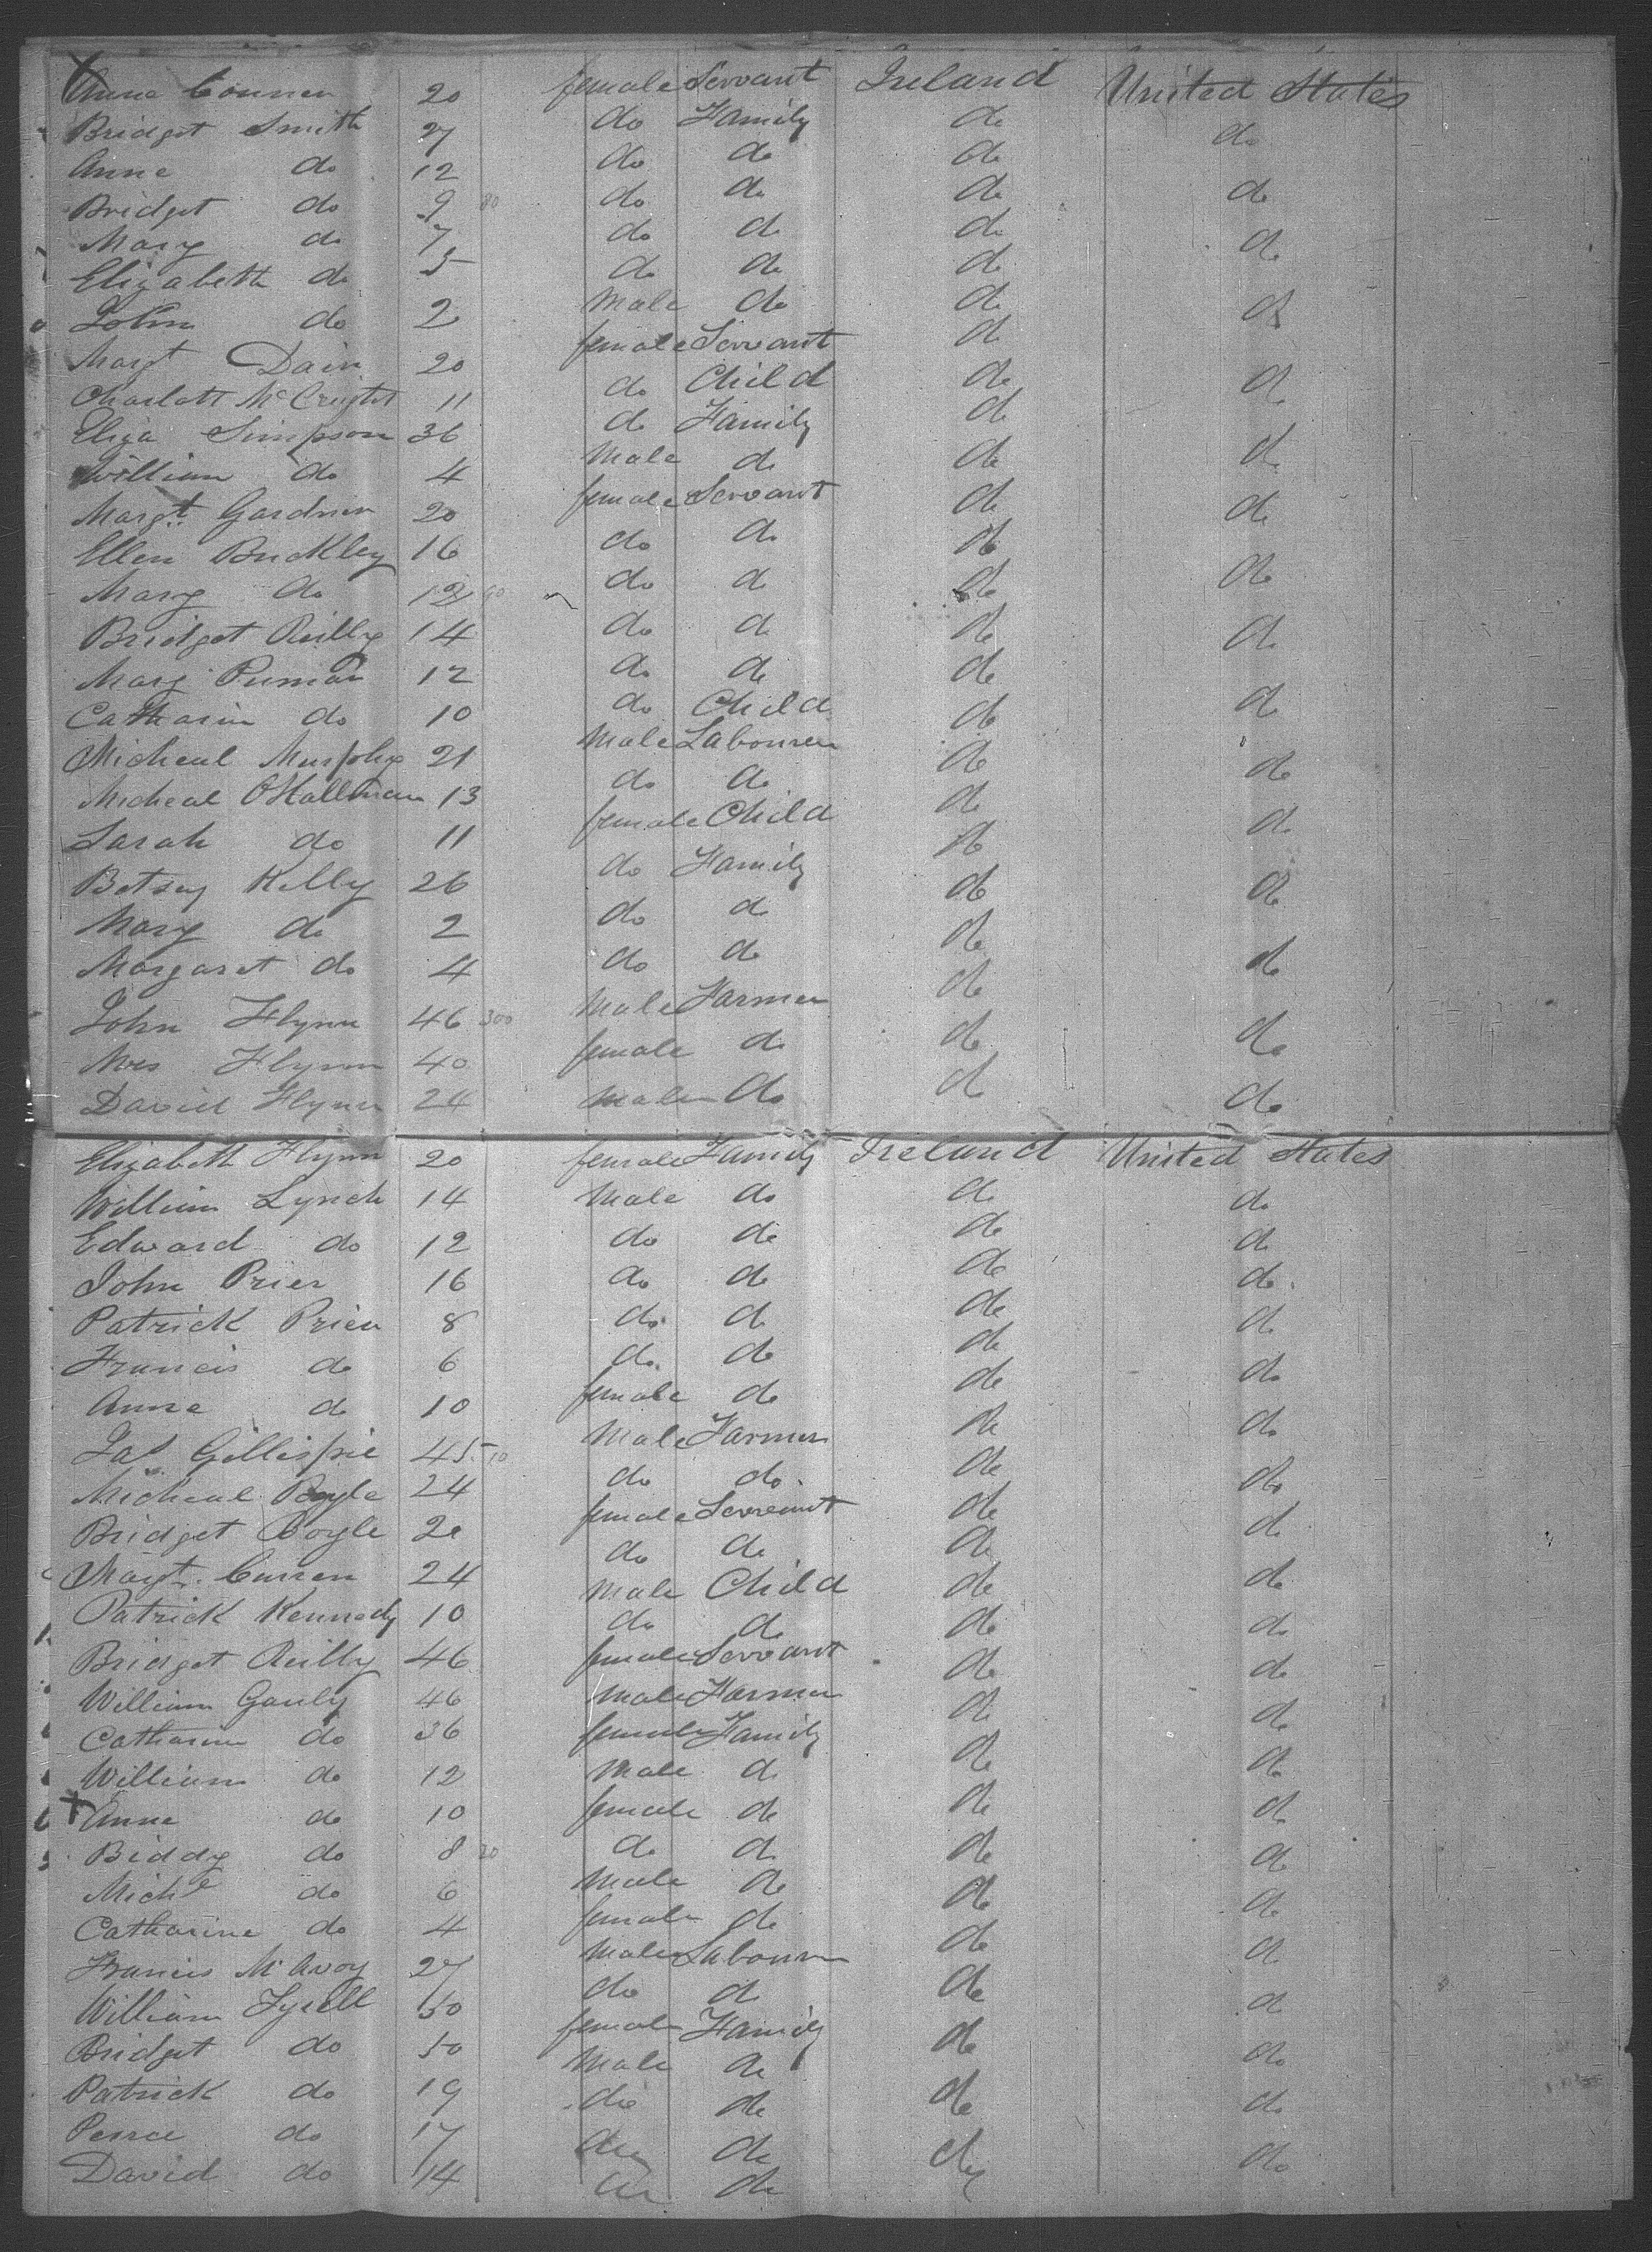 Anne Connen 20 female Servant Ireland United States
Bridget Smith 27 do Family do do
Anne do 12 do do do
Bridget do 9 80 do do do do
Mary do 7 do do do do
Elizabeth do 5 do do do
John do 2 Male do do do
Margt Dain 20 female Servant do
Charlott McCreight 11 do Child do do
Eliza Simpson 36 do Family do
William do 4 Male do do do
Margt Gardner 20 female Servant do do
Ellen Buckley 16 do do do
Mary do 12 90 do do do do
Bridget Reilly 14 do do do do
Mary 12 do do do
Catharin do 10 do Child do do
Micheal Murphy 21 Male Labourer do do
Micheal 13 do do do
Sarah do 11 female Child do do
Betsey Kelly 26 do Family do do
Mary do 2 do do do
Margaret do 4 do do do do
John Flynn 46 300 Male Farmer do
Mrs Flynn 40 female do do do
David Flynn 24 Male do do do
Elizabeth Flynn 20 female Family Ireland United States
William Lynch 14 Male do do do
Edward do 12 do do do do
John Prier 16 do do do do
Patrick Prier 8 do do do do
Francis do 6 do do do do
Anne do 10 female do do
Jas Gillispie 45 10 Male Farmer do do
Micheal Boyle 24 do do do do
Bridget Boyle 20 female Servant do do
Margt. Curren 24 do do do do
Patrick Kennedy 10 Male Child do
do do do do
Bridget Reilly 46 female Servant do do
William Gauly 46 Male Farmer do do
Catharine do 36 female Family do do
William do 12 Male do do
Anne do 10 female do do do
Biddy do 8 20 do do do do
Michl do 6 Male do do do
Catharine do 4 female do do do
Francis McAvoy 27 Male Labourer do
William Tyrell 50 do do do
Bridget do 50 female Family do do
Patrick do 19 Male do do
Peirce do 17 do do do do
David do 14 do do do do